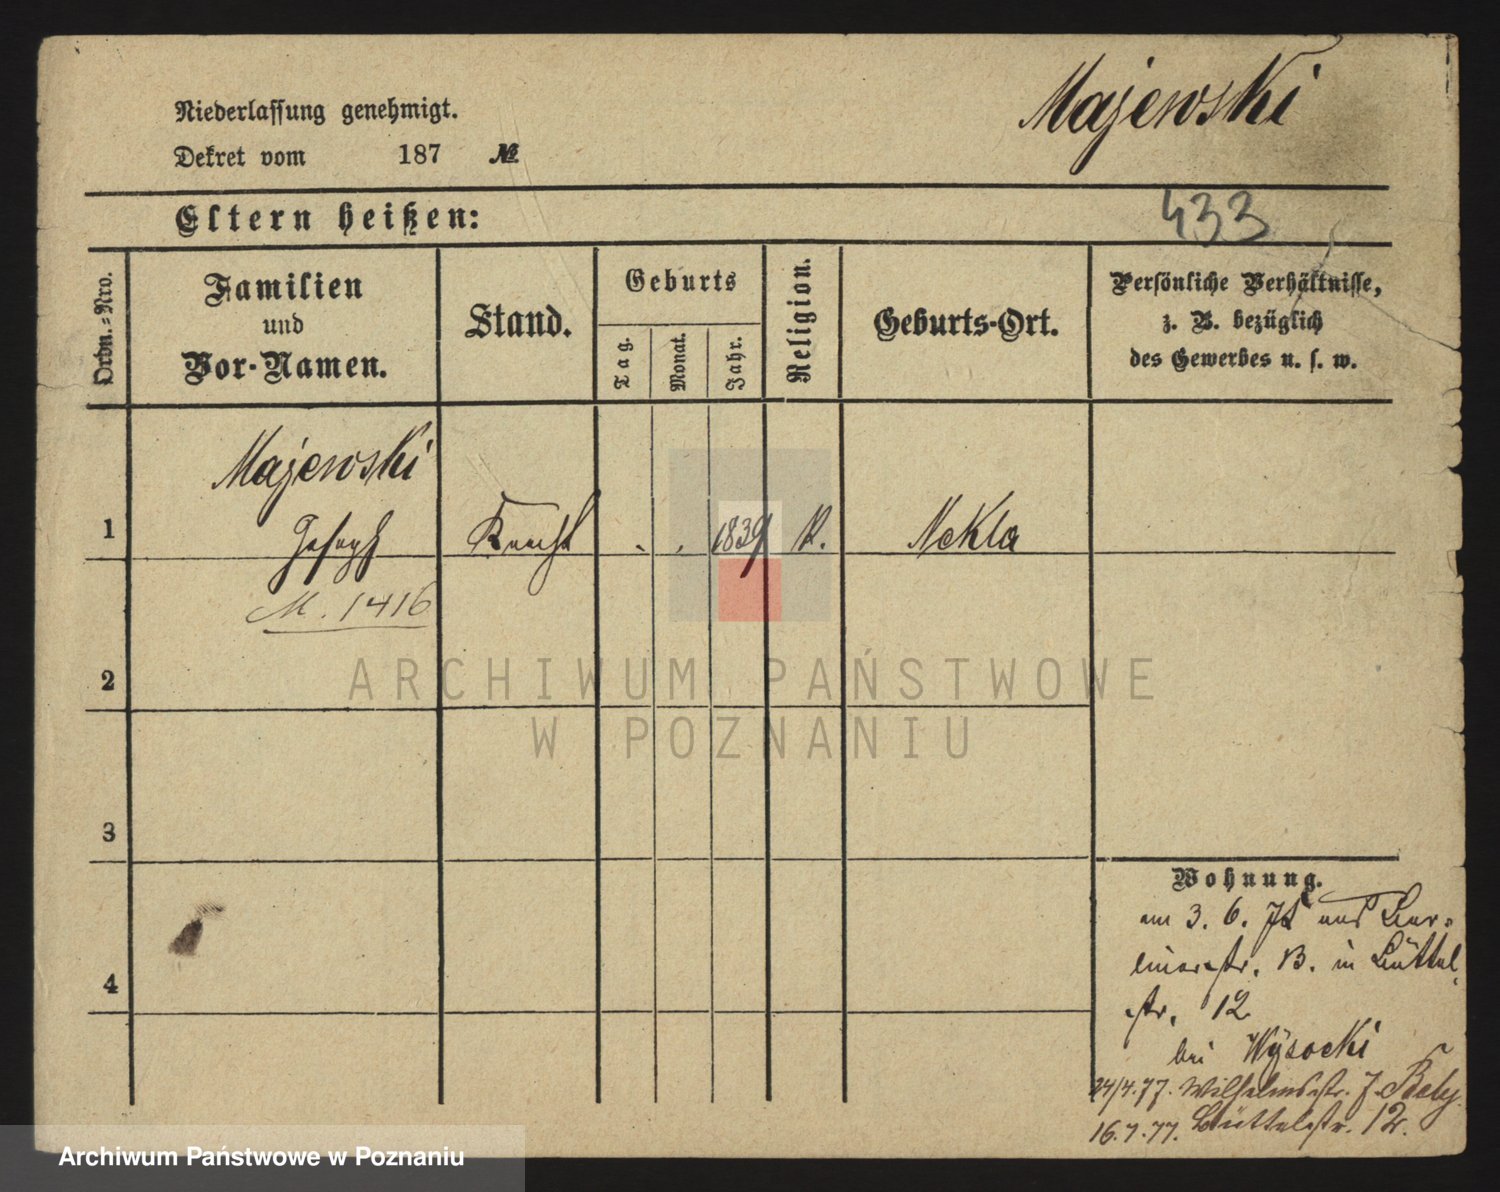 Majewski
Niederlassung genehmigt.
Dekret vom 187 №
433
Eltern heißen:
Ordn.-Nro.
Familien
und
Vor-Namen.
Stand.
Geburts
Tag.
Monat.
Jahr.
Religion.
Geburts-Ort.
Persönliche Verhältnisse,
z. B. bezüglich
des Gewerbes u. s. w.
Majewski
1 Joseph Knecht . . 1839 K. Nekla
M. 1416
2
3
4
Wohnung.
am 3. 6. aus Ber-
linerstr. 13. in Büttel-
str. 12
bei Wysocki
24/4.77. Wilhelmstr. 7.
16.7.77. Büttelstr. 12.
ARCHIWUM PAŃSTWOWE
W POZNANIU
Archiwum Państwowe w Poznaniu